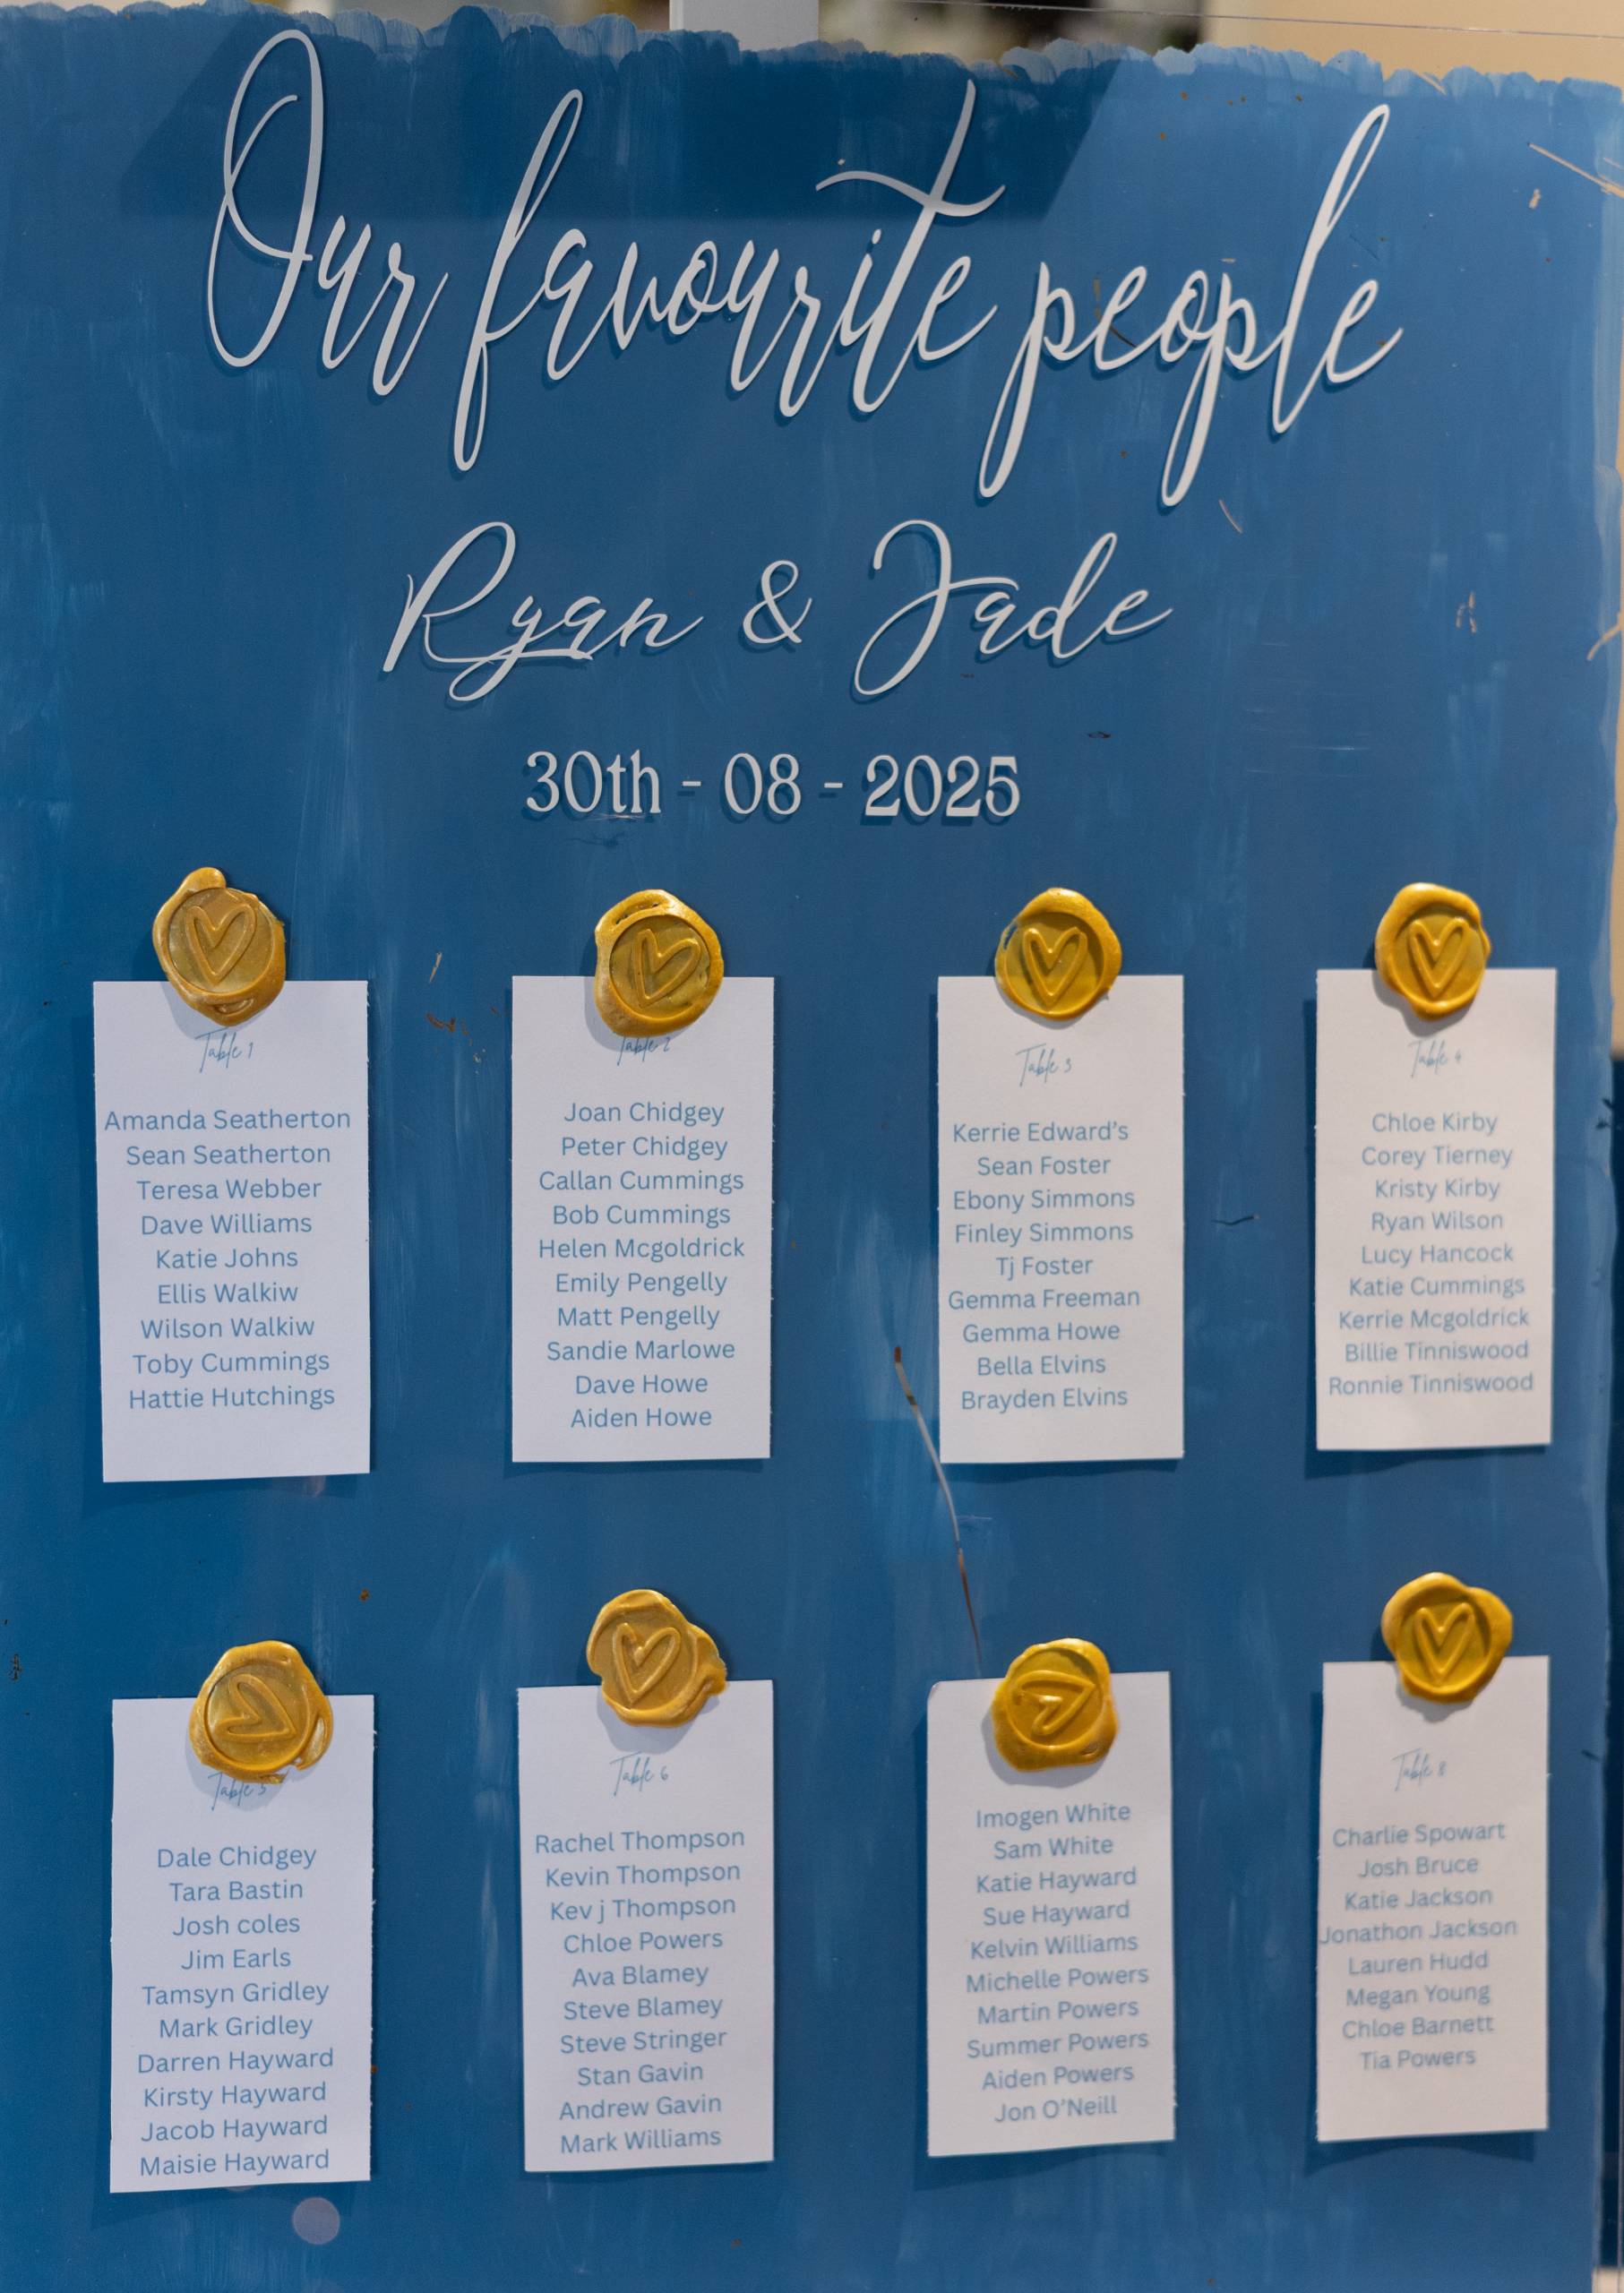 Our favourite people
Ryan & Jade
30th - 08 - 2025
Table 1
Amanda Seatherton
Sean Seatherton
Teresa Webber
Dave Williams
Katie Johns
Ellis Walkiw
Wilson Walkiw
Toby Cummings
Hattie Hutchings
Table 2
Joan Chidgey
Peter Chidgey
Callan Cummings
Bob Cummings
Helen Mcgoldrick
Emily Pengelly
Matt Pengelly
Sandie Marlowe
Dave Howe
Aiden Howe
Table 3
Kerrie Edward’s
Sean Foster
Ebony Simmons
Finley Simmons
Tj Foster
Gemma Freeman
Gemma Howe
Bella Elvins
Brayden Elvins
Table 4
Chloe Kirby
Corey Tierney
Kristy Kirby
Ryan Wilson
Lucy Hancock
Katie Cummings
Kerrie Mcgoldrick
Billie Tinniswood
Ronnie Tinniswood
Table 5
Dale Chidgey
Tara Bastin
Josh coles
Jim Earls
Tamsyn Gridley
Mark Gridley
Darren Hayward
Kirsty Hayward
Jacob Hayward
Maisie Hayward
Table 6
Rachel Thompson
Kevin Thompson
Kev j Thompson
Chloe Powers
Ava Blamey
Steve Blamey
Steve Stringer
Stan Gavin
Andrew Gavin
Mark Williams
Imogen White
Sam White
Katie Hayward
Sue Hayward
Kelvin Williams
Michelle Powers
Martin Powers
Summer Powers
Aiden Powers
Jon O’Neill
Table 8
Charlie Spowart
Josh Bruce
Katie Jackson
Jonathon Jackson
Lauren Hudd
Megan Young
Chloe Barnett
Tia Powers